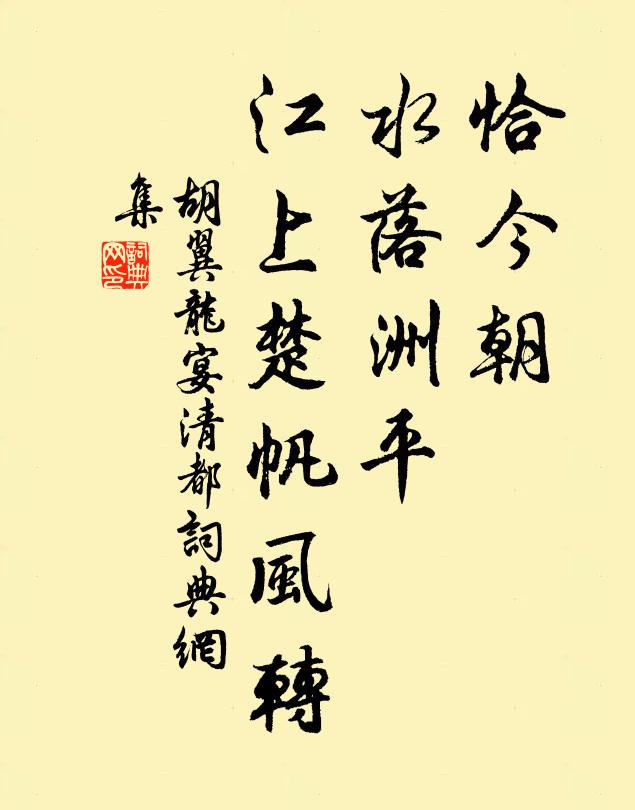 恰今朝
水落洲平
江上楚帆風轉
胡翼龍宴清都詞典網
集
詞典網印